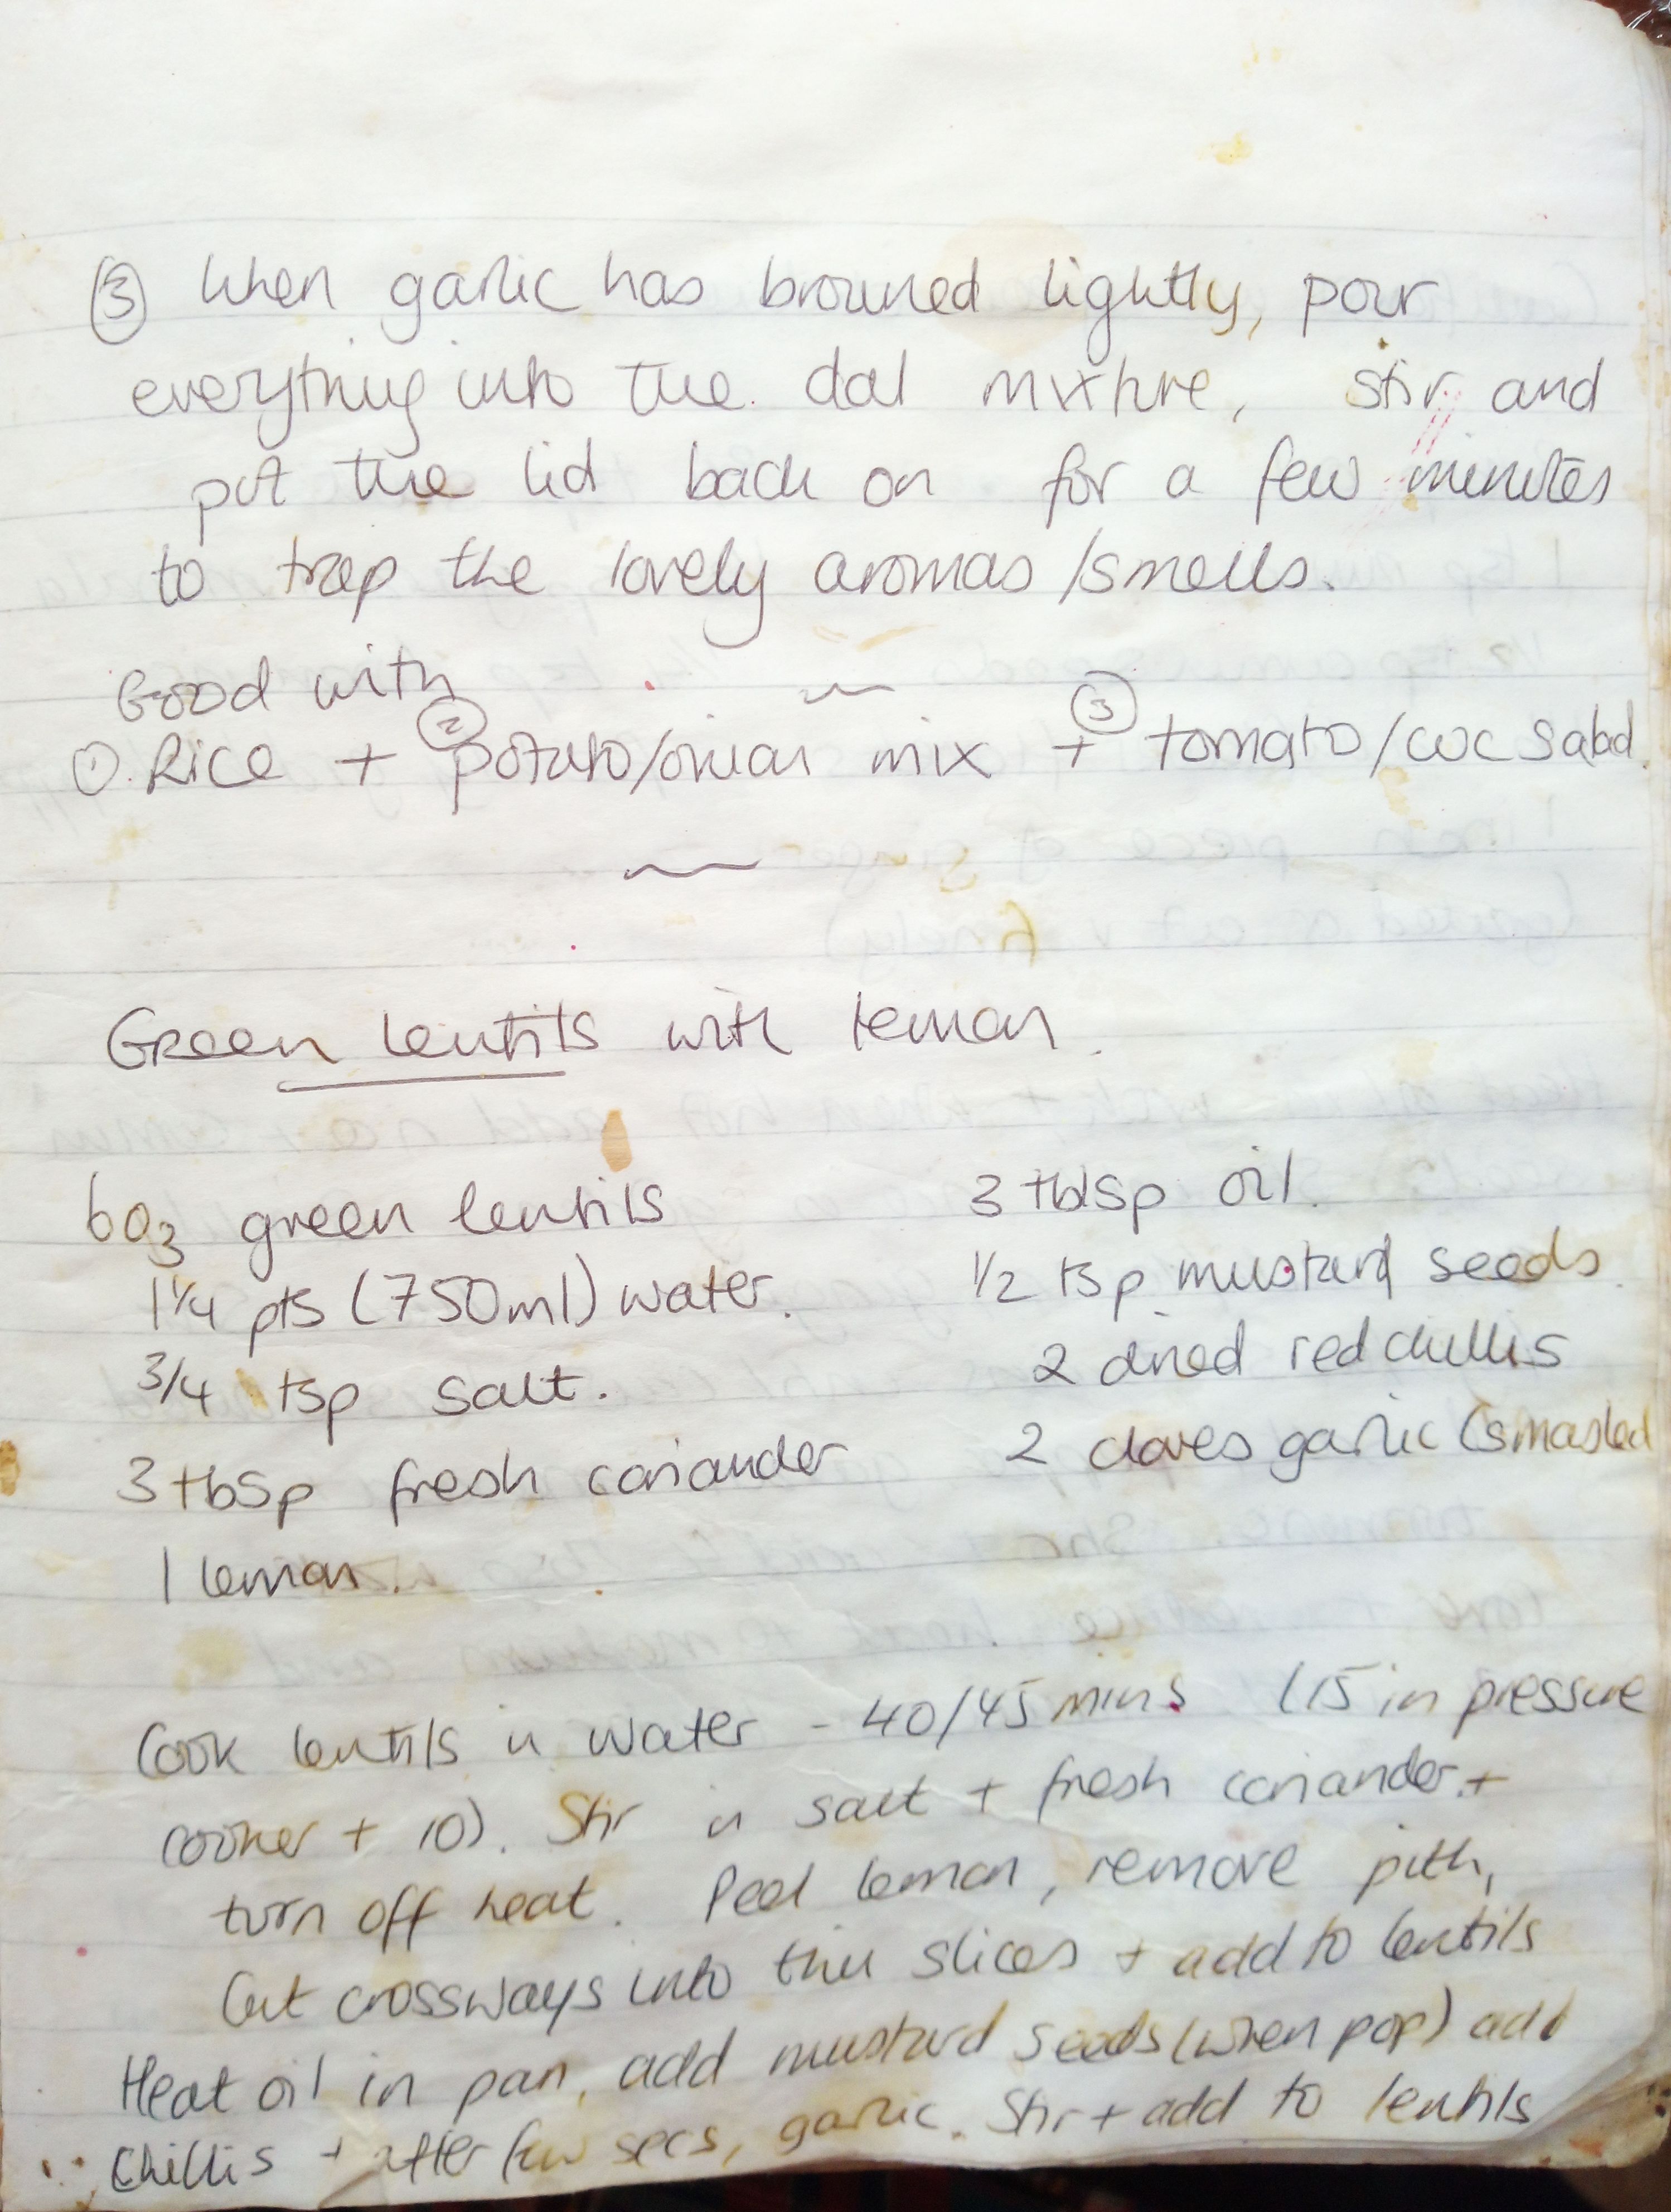 ③ When garlic has browned lightly, pour
everything into the dal mixture, stir and
put the lid back on for a few minutes
to trap the lovely aromas /smells.
Good with
①. Rice + ② potato/onion mix + ③ tomato/cuc salad.
Green lentils with lemon.
6oz green lentils
1 1/4 pts (750ml) water.
3/4 tsp salt.
3 tbsp fresh coriander
1 lemon.
3 tblsp oil.
1/2 tsp mustard seeds.
2 dried red chillis
2 cloves garlic (smashed
Cook lentils in water - 40/45 mins (15 in pressure
cooker + 10). Stir in salt + fresh coriander +
turn off heat. Peel lemon, remove pith,
Cut crossways into thin slices + add to lentils
Heat oil in pan, add mustard seeds (when pop) add
Chillis + after few secs, garlic. Stir + add to lentils